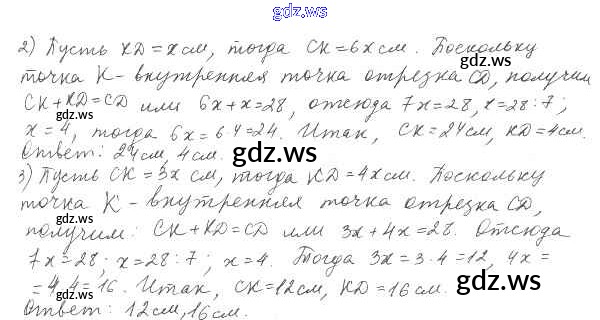 gdz.ws
2) Пусть KD = x см, тогда CK = 6x см. Поскольку
точка K - внутренняя точка отрезка CD, получим
CK + KD = CD или 6x + x = 28, отсюда 7x = 28, x = 28 : 7;
x = 4, тогда 6x = 6·4 = 24. Итак, CK = 24 см, KD = 4 см.
Ответ: 24 см, 4 см.
gdz.ws
gdz.ws
3) Пусть CK = 3x см, тогда KD = 4x см. Поскольку
точка K - внутренняя точка отрезка CD,
gdz.ws
gdz.ws
получим: CK + KD = CD или 3x + 4x = 28. Отсюда
7x = 28; x = 28 : 7; x = 4. Тогда 3x = 3·4 = 12, 4x =
gdz.ws
= 4·4 = 16. Итак, CK = 12 см, KD = 16 см.
gdz.ws
gdz.ws
Ответ: 12 см, 16 см.